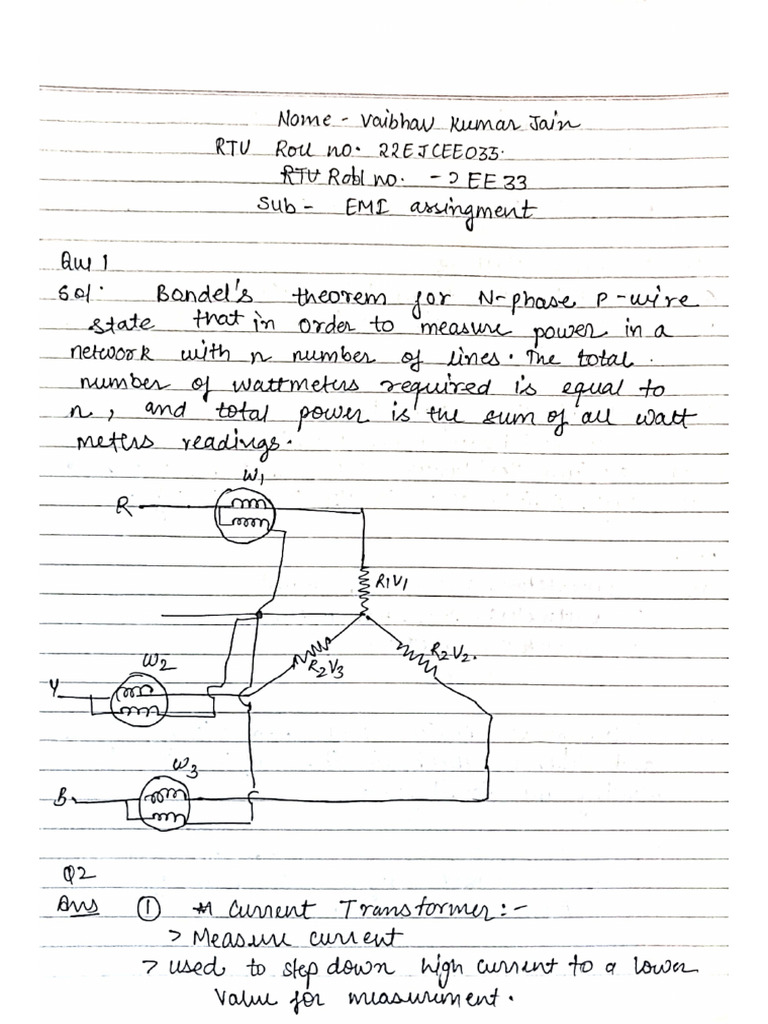 Name - Vaibhav Kumar Jain
RTU Roll no. 22EJCEE033.
RTU Robl no. - 2EE33
Sub - EMI assingment
Que 1
Sol. Bondel's theorem for N-phase P-wire
state that in order to measure power in a
network with n number of lines. The total
number of wattmeters required is equal to
n, and total power is the sum of all watt
meters readings.
W1
R
R1V1
W2
R2V3
R2V2.
Y
W3
B
Q2
Ans ① * Current Transformer:-
> Measure current
> used to step down high current to a lower
value for measurement.